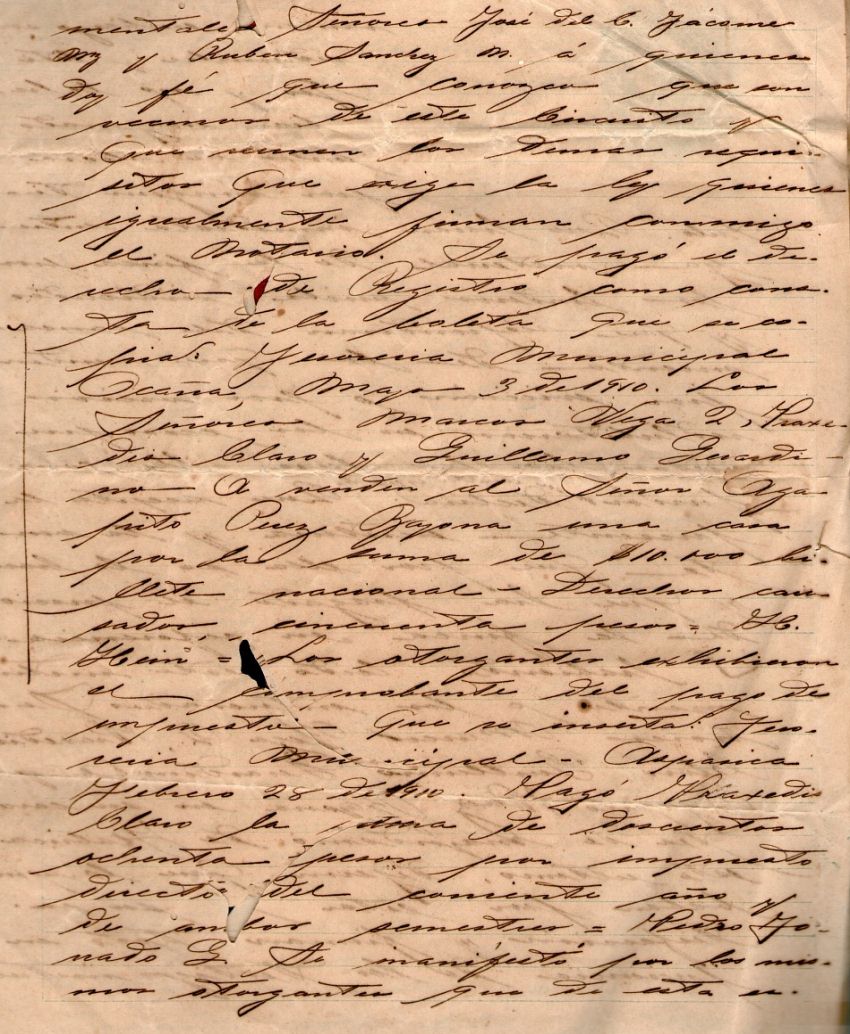 mentales Señores José del C. Jácome
M y Ruben Sanchez N. á quienes
Doy fé que conozco que son
vecinos de este Circuito y
Que reunen los demas requi-
sitos Que exige la ley quienes
igualmente firman conmigo
el Notario. Se pagó el de-
recho de Registro como cons-
ta de la boleta que se co-
pia: Tesoreria Municipal
Ocaña, Mayo 3 de 1910. Los
Señores Marcos Vega Q, Praxe-
dis Claro y Guillermo Guardi-
no venden al Señor Aga
pito Perez Bayona una casa
por la suma de $10.000 bi-
llete nacional - Derechos cau
sados, cincuenta pesos =
= Los otorgantes exhibieron
el comprobante del pago de
impuesto - Que se inserta: Teso-
reria Municipal - Aspasica
Febrero 28 de 1910. Pagó Praxedis
Claro la suma de doscientos
ochenta pesos por impuesto
directo del corriente año y
de ambos semestres = Pedro
G. Se manifestó por los mis-
mos otorgantes que de esta es-